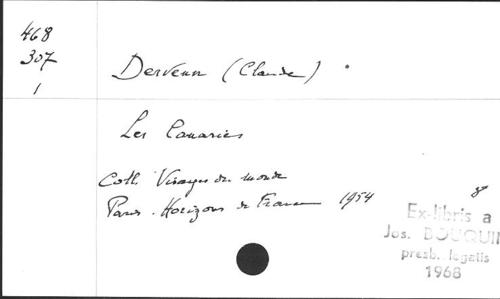 468
307
1
Dervenn (Claude)
Les Canaries
Coll. Visages du monde
Paris. Horizons de France 1954 8°
Ex-libris a
Jos. BOUQUIN
presb. legatis
1968